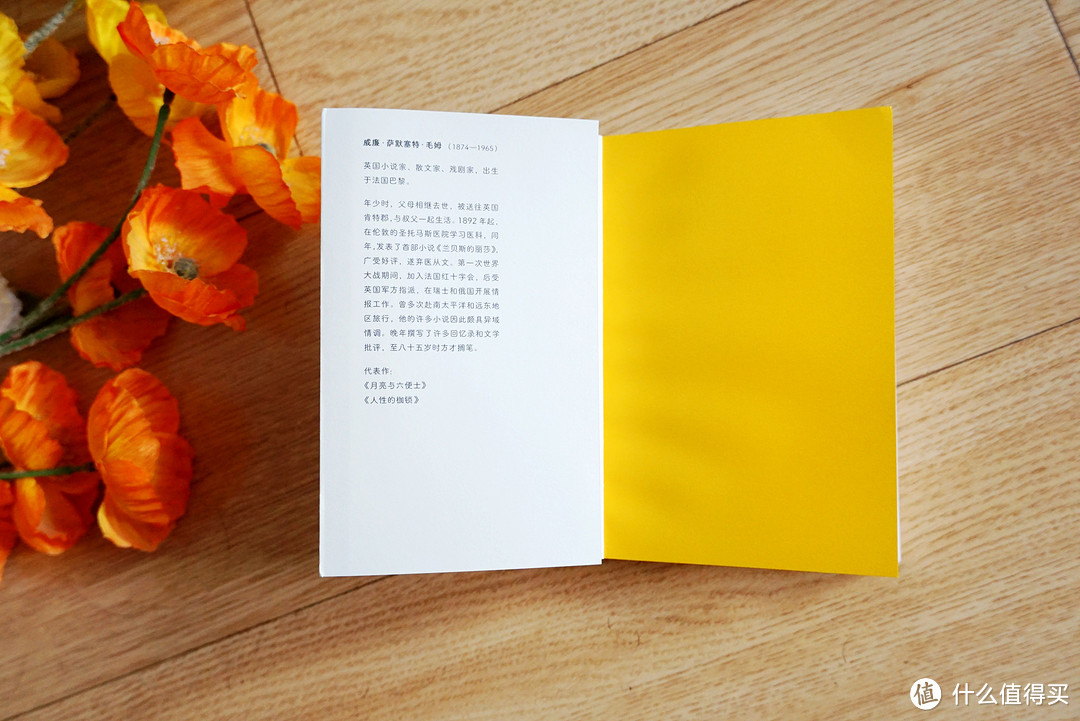 威廉·萨默塞特·毛姆（1874—1965）
英国小说家、散文家、戏剧家，出生
于法国巴黎。
年少时，父母相继去世，被送往英国
肯特郡，与叔父一起生活。1892年起，
在伦敦的圣托马斯医院学习医科，同
年，发表了首部小说《兰贝斯的丽莎》，
广受好评，遂弃医从文。第一次世界
大战期间，加入法国红十字会，后受
英国军方指派，在瑞士和俄国开展情
报工作。曾多次赴南太平洋和远东地
区旅行，他的许多小说因此颇具异域
情调。晚年撰写了许多回忆录和文学
批评，至八十五岁时方才搁笔。
代表作：
《月亮与六便士》
《人性的枷锁》
值 什么值得买